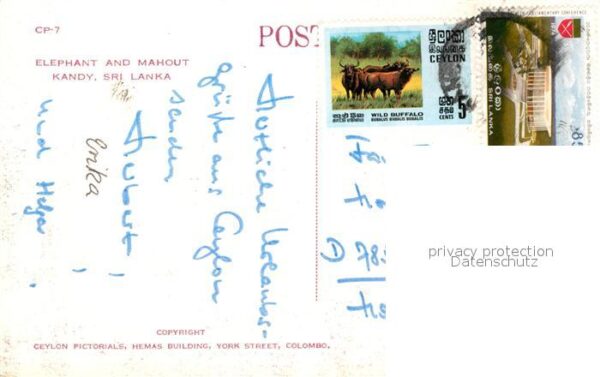 CP-7
POST
ELEPHANT AND MAHOUT
KANDY, SRI LANKA
Herzliche Urlaubs-
grüße aus Ceylon
senden
Hubert,
Erika
und Helga
ශ්‍රී ලංකා
இலங்கை
CEYLON
5
සත
சதம்
CENTS
WILD BUFFALO
BUBALUS BUBALIS BUBALIS
ශ්‍රී ලංකා
இலங்கை
SRI LANKA
privacy protection
Datenschutz
COPYRIGHT
CEYLON PICTORIALS, HEMAS BUILDING, YORK STREET, COLOMBO.